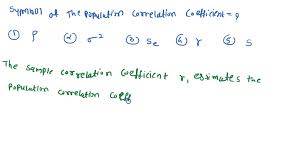 Symbol of the population correlation coefficient = ρ
① ρ ② σ² ③ Se ④ r ⑤ S
The sample correlation coefficient r, esimates the
population correlation coeff